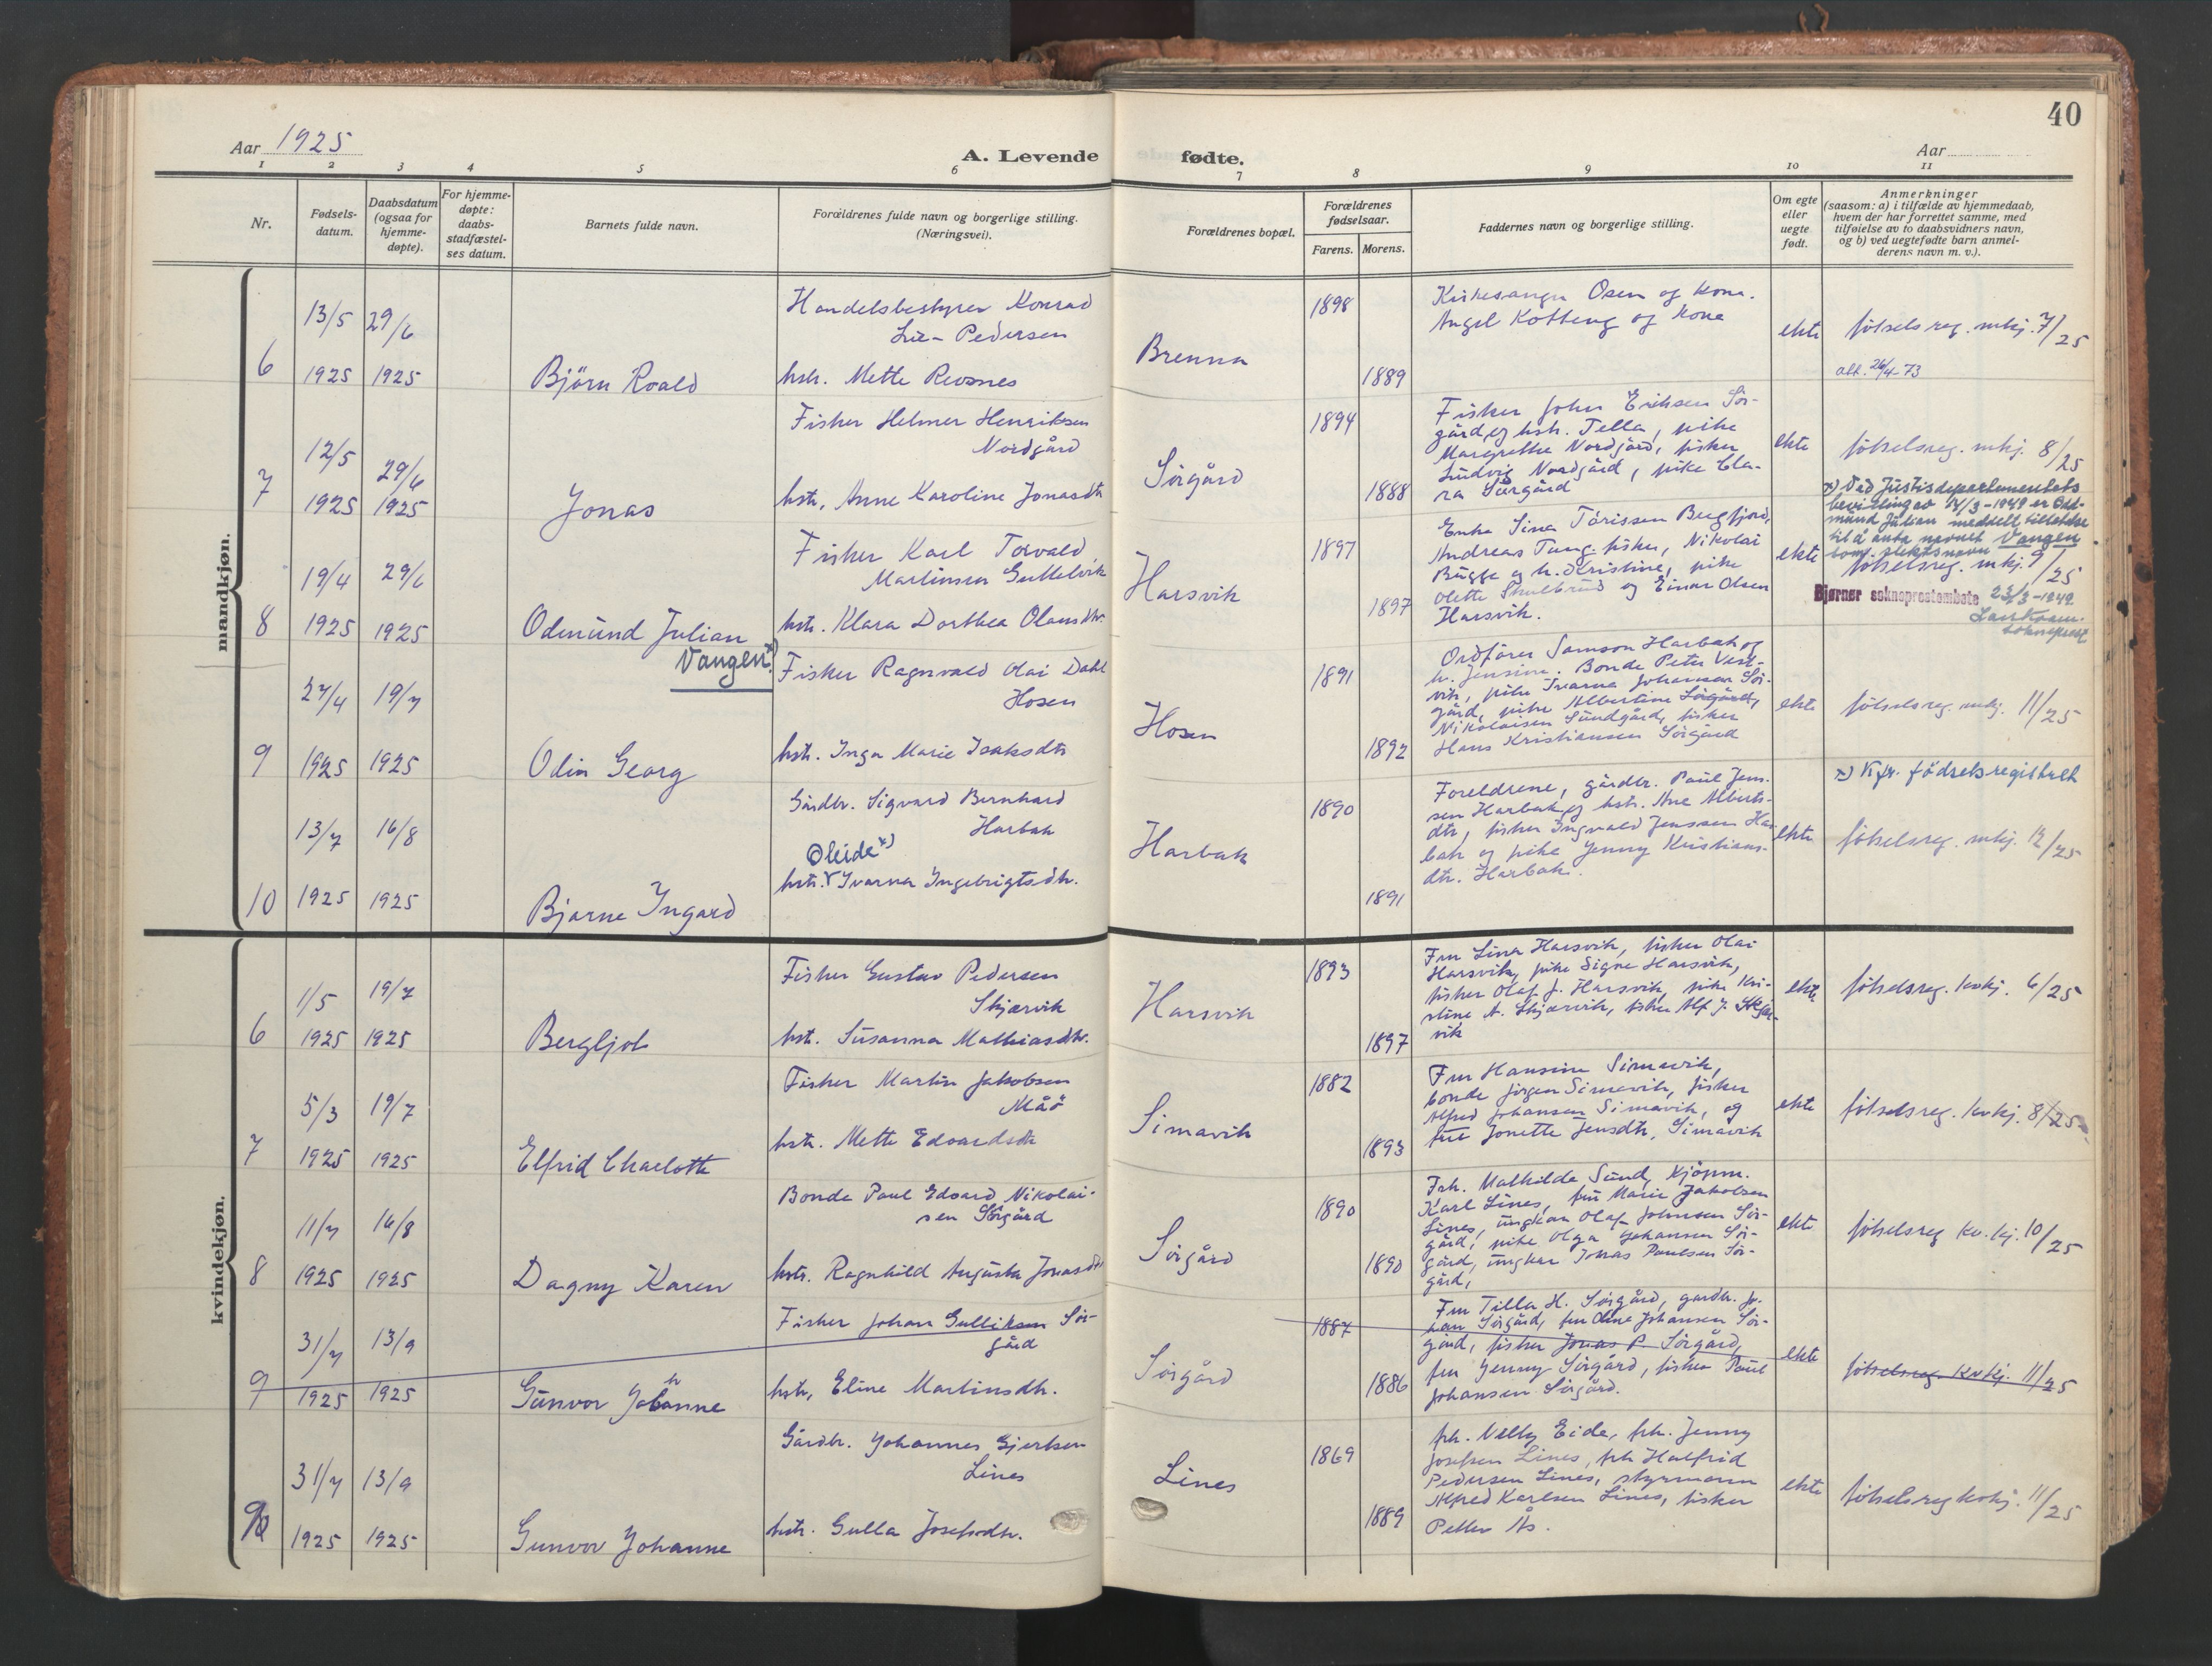 40
Aar 1925
A. Levende fødte.
Aar
1 2 3 4 5 6 7 8 9 10 11
Nr.
Fødsels-
datum.
Daabsdatum
(ogsaa for
hjemme-
døpte).
For hjemme-
døpte:
daabs-
stadfæstel-
ses datum.
Barnets fulde navn.
Forældrenes fulde navn og borgerlige stilling.
(Næringsvei).
Forældrenes bopæl.
Forældrenes
fødselsaar.
Farens. Morens.
Faddernes navn og borgerlige stilling.
Om egte
eller
uegte
født.
Anmerkninger
(saasom: a) i tilfælde av hjemmedaab,
hvem der har forrettet samme, med
tilføielse av to daabsvidners navn,
og b) ved uegtefødte barn anmel-
derens navn m. v.).
mandkjøn.
6
13/5 1925
29/6 1925
Björn Roald
Handelsbestyrer Konrad
Lie-Pedersen
hstr. Mette Revsnes
Brenna
1898
1889
Kirkesanger Osen og kona.
Angel Kotteng og kone
ekte
fötselsreg. mkj. 7/25
att. 26/4-73
7
12/5 1925
29/6 1925
Jonas
Fisker Helmer Henriksen
Nordgård
hstr. Anne Karoline Jonasdtr
Sörgård
1894
1888
Fisker John Eriksen Sör-
gård og hstr. Tella, pike
Margrethe Nordgård, fisker
Ludvig Nordgård, pike Cla-
ra Sörgård
ekte
fötselsreg. mkj. 8/25
8
19/4 1925
29/6 1925
Odmund Julian
Vangen x)
Fisker Karl Torvald
Martinsen Guttelvik
hstr. Klara Dorthea Olausdtr.
Harsvik
1897
1897
Enke Sina Törissen Bergfjord,
Andreas Tung. fisker, Nikolai
Bugge og h. Kristine, pike
Olette Skulbrud og Einar Olsen
Harsvik.
ekte
x) Ved Justisdepartementets
bevilling av 14/3-1949 er Od-
mund Julian meddelt tillatelse
til å anta navnet Vangen
som slektsnavn
fötselsreg. mkj. 9/25
Bjørnør sokneprestembete 23/3-1949.
sokneprest
9
27/4 1925
19/7 1925
Odin Georg
Fisker Ragnvald Olai Dahl
Hosen
hstr. Inga Marie Isaksdtr
Hosen
1891
1892
Ordförer Samson Harbak og
h. Jensine. Bonde Peter Vest-
vik, pike Ivarna Johansen Sör-
gård, pike Albertine Sörgård,
Nikolaisen Sundgård, fisker
Hans Kristiansen Sörgård
ekte
fötselsreg. mkj. 11/25
10
13/7 1925
16/8 1925
Bjarne Ingard
Gårdbr. Sigvard Bernhard
Harbak
Oleide x)
hstr. Ivarna Ingebrigtsdtr.
Harbak
1890
1891
Foreldrene, gårdbr. Paul Jens-
sen Harbak og hstr. Ane Alberts-
dtr, fisker Ingvald Jenssen Har-
bak og pike Jenny Kristians-
dtr. Harbak.
ekte
x) Kfr. födselsregistret
fötselsreg. mkj. 12/25
kvindekjøn.
6
1/5 1925
19/7 1925
Bergljot
Fisker Gustav Pedersen
Skjærvik
hstr. Susanna Mathiasdtr.
Harsvik
1893
1897
Fru Lina Harsvik, fisker Olai
Harsvik, pike Signe Harsvik,
fisker Olaf J. Harsvik, pike Kri-
stine A. Skjærvik, fisker Alf J. Skjær-
vik
ekte
fötselsreg. kvkj. 6/25
7
5/3 1925
19/7 1925
Elfrid Charlotte
Fisker Martin Jakobsen
Måö
hstr. Mette Edvardsdtr
Simavik
1882
1893
Fru Hansine Simavik,
bonde Jörgen Simavik, fisker
Alfred Johansen Simavik, og
fru Jonette Jensdtr, Simavik
ekte
fötselsreg. kvkj. 8/25
8
11/7 1925
16/8 1925
Dagny Karen
Bonde Paul Edvard Nikolai-
sen Sörgård
hstr. Ragnhild Augusta Jonasdtr
Sörgård
1890
1890
Frk. Mathilde Sund, kjöpm.
Karl Lines, fru Marie Jakobsen
Lines, ungkar Olaf Johnsen Sör-
gård, pike Olga Johansen Sör-
gård, ungkar Jonas Paulsen Sör-
gård,
ekte
fötselsreg kv. kj. 10/25
9
31/7 1925
13/9 1925
Gunvor Johanne
Fisker Johan Gulliksen Sör-
gård
hstr, Eline Martinsdtr.
Sörgård
1887
1886
Fru Tilla H. Sörgård, gardbr. Jo-
han Sörgård, fru Oline Johansen Sör-
gård, fisker Jonas P. Sörgård,
fru Jenny Sörgård, fisker Paul
Johansen Sörgård.
ekte
fötselsreg. kvkj. 11/25
9
31/7 1925
13/9 1925
Gunvor Johanne
Gårdbr. Johannes Gjertsen
Lines
hstr. Gulla Josefsdtr.
Lines
1869
1889
frk. Nelly Eide, frk. Jenny
Josefsen Lines, frk Halfrid
Pedersen Lines, styrmann
Alfred Karlsen Lines, fisker
Petter Ås.
ekte
fötselsreg kvkj. 11/25